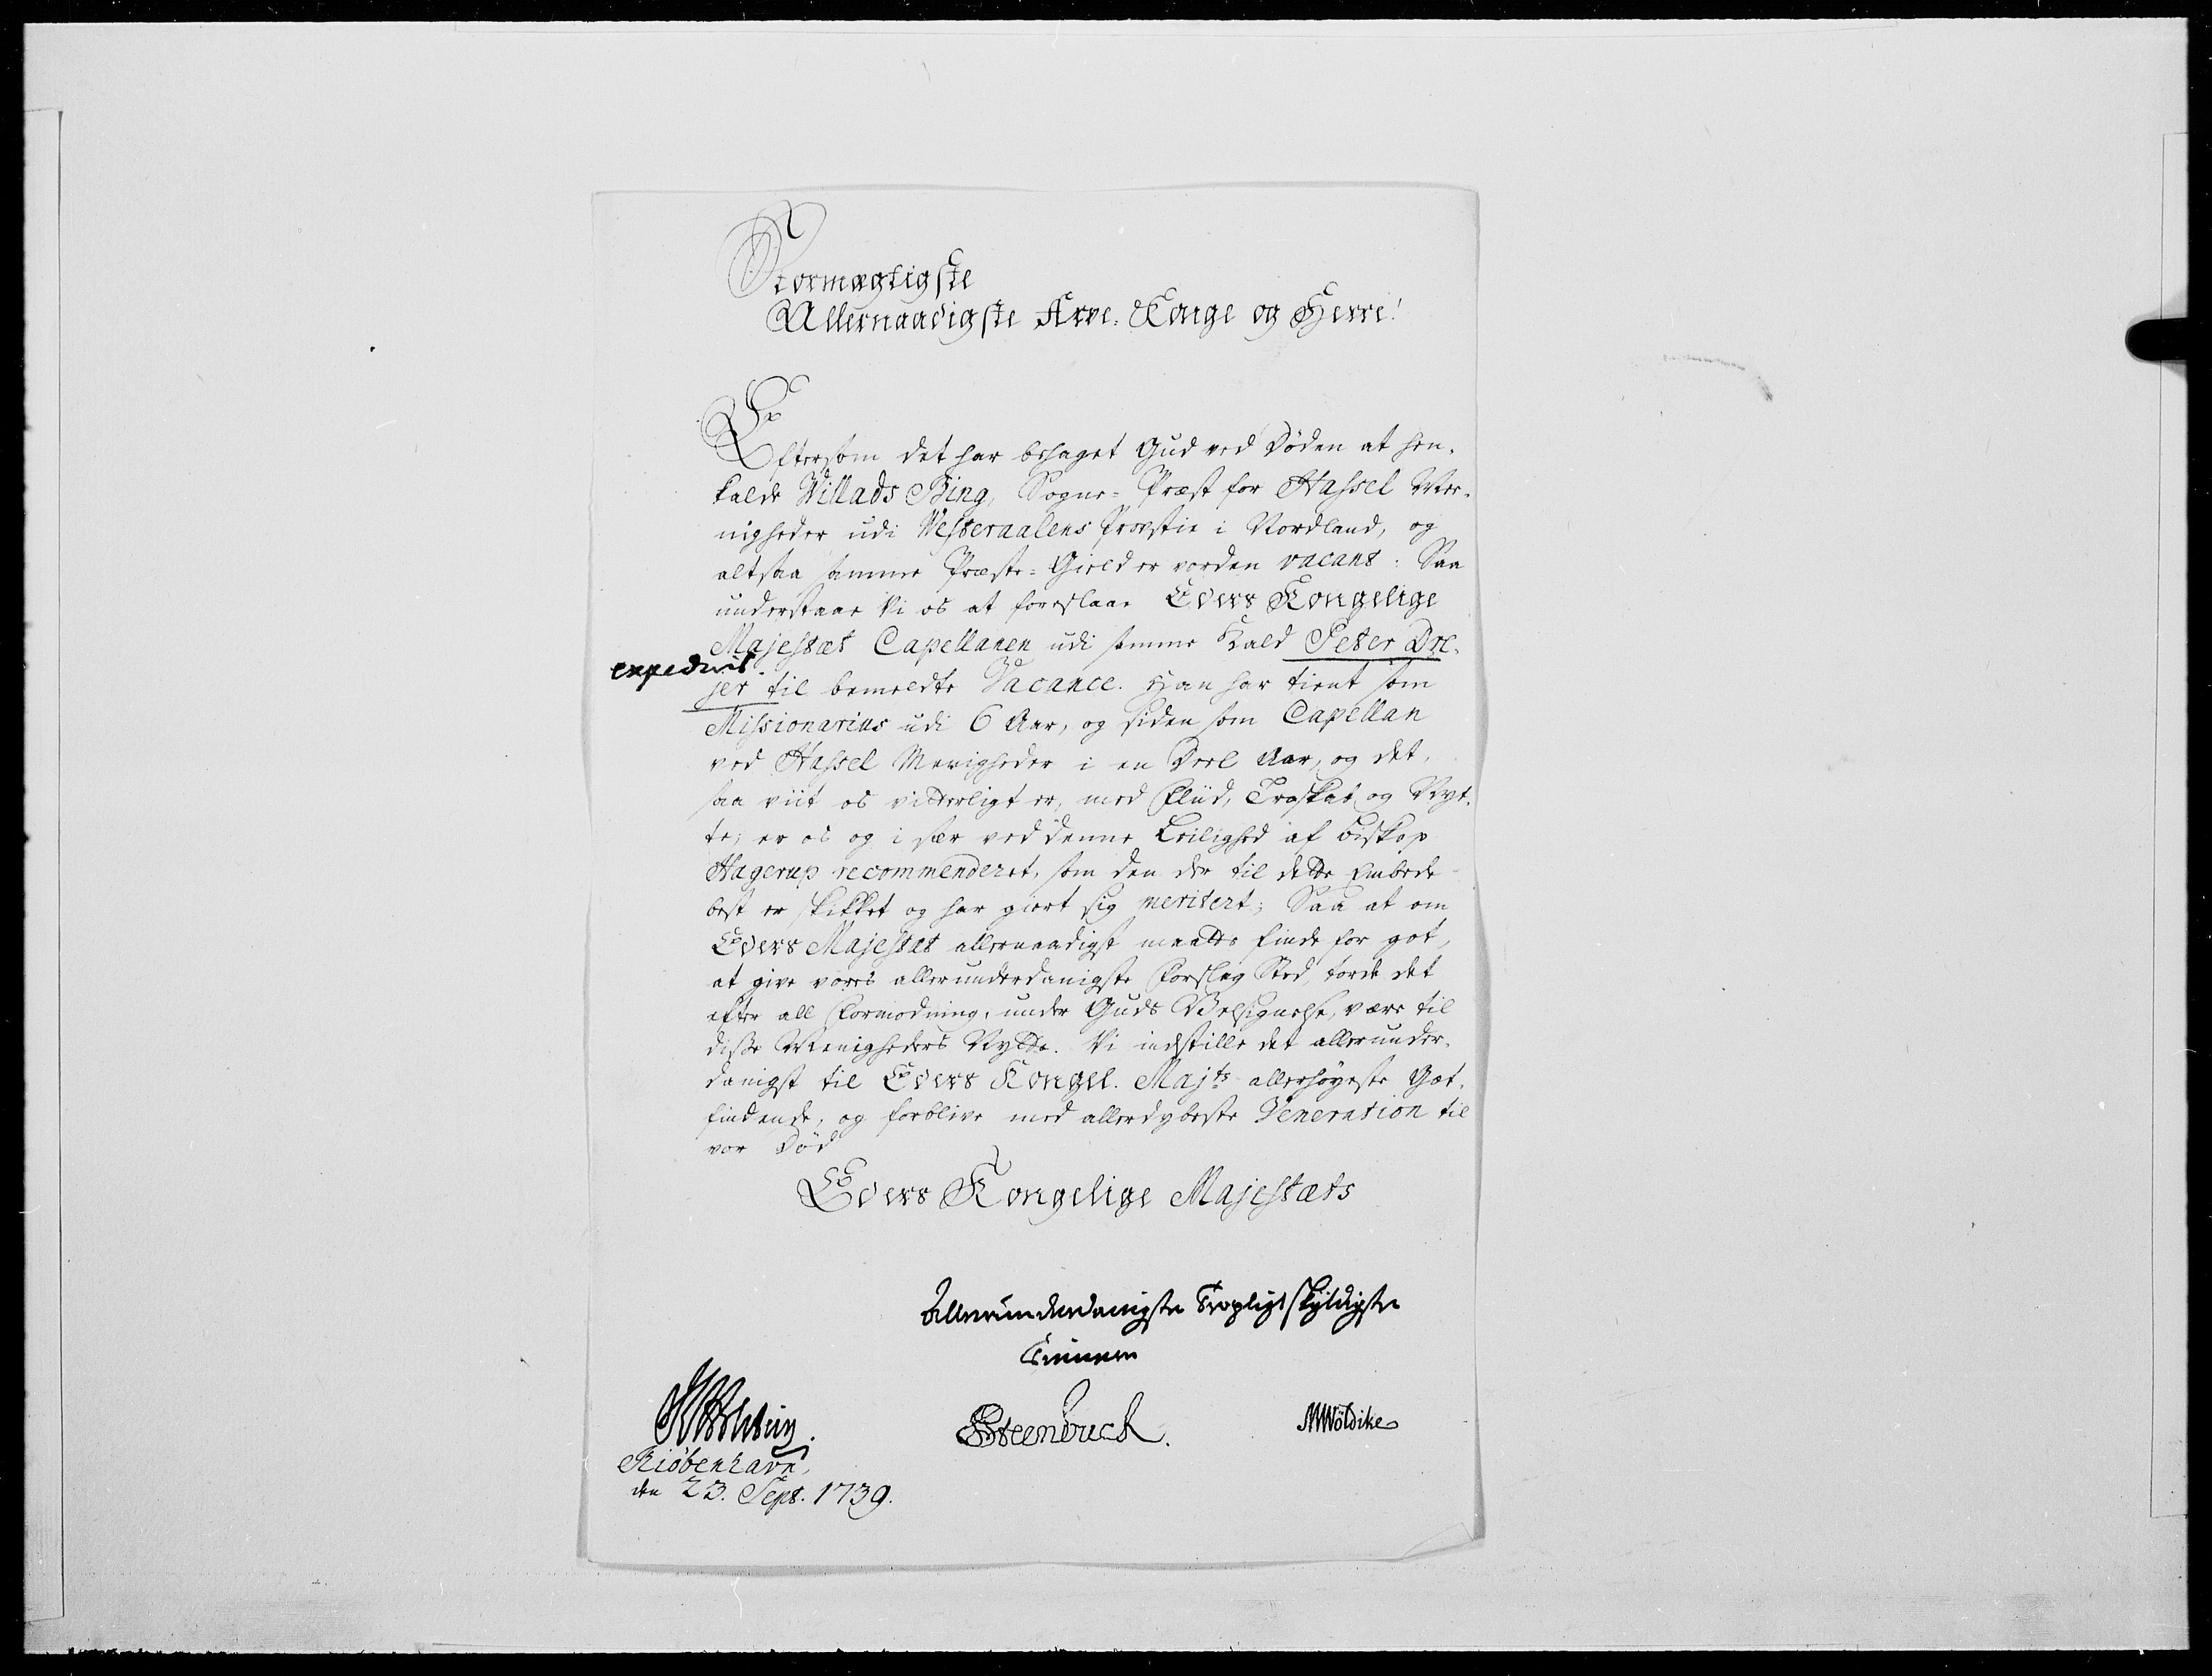 Stormægtigste
Allernaadigste Arve-Konge og Herre!
Eftersom det har behaget Gud ved Døden at hen-
kalde Willads Bing, Sogne-Præst for Hassel Me-
nigheder udi Westeraalens Provstie i Nordland, og
altsaa samme Præste-Gield er vorden vacant: Saa
understaae Vi os at foreslaae Eders Kongelige
Majestæt Capellanen udi samme Kald Peter Dre-
expederit.
jer til bemeldte Vacance. Han har tient som
Missionarius udi 6 Aar, og siden som Capellan
ved Hassel Menigheder i en Deel Aar, og det,
saa viit os vitterligt er, med Fliid, Troskab og Nyt-
te; er os og i sær ved denne Leilighed af Biskop
Hagerup recommenderet, som den der til dette Embede
best er skikket og har giort sig meritert; Saa at om
Eders Majestæt allernaadigst maatte finde for got,
at give vores allerunderdanigste Forslag Sted, torde det
efter all Formodning, under Guds Velsignelse, være til
disse Menigheders Nytte. Vi indstille det allerunder-
danigst til Eders Kongel. Majts allerhøyeste Got-
findende, og forblive med allerdybeste Veneration til
vor Død
Eders Kongelige Majestæts
Allerunderdanigste Tropligtskyldigste
Tienere
Steenbuch.
MWöldike
Kiöbenhavn,
den 23. Sept. 1739.